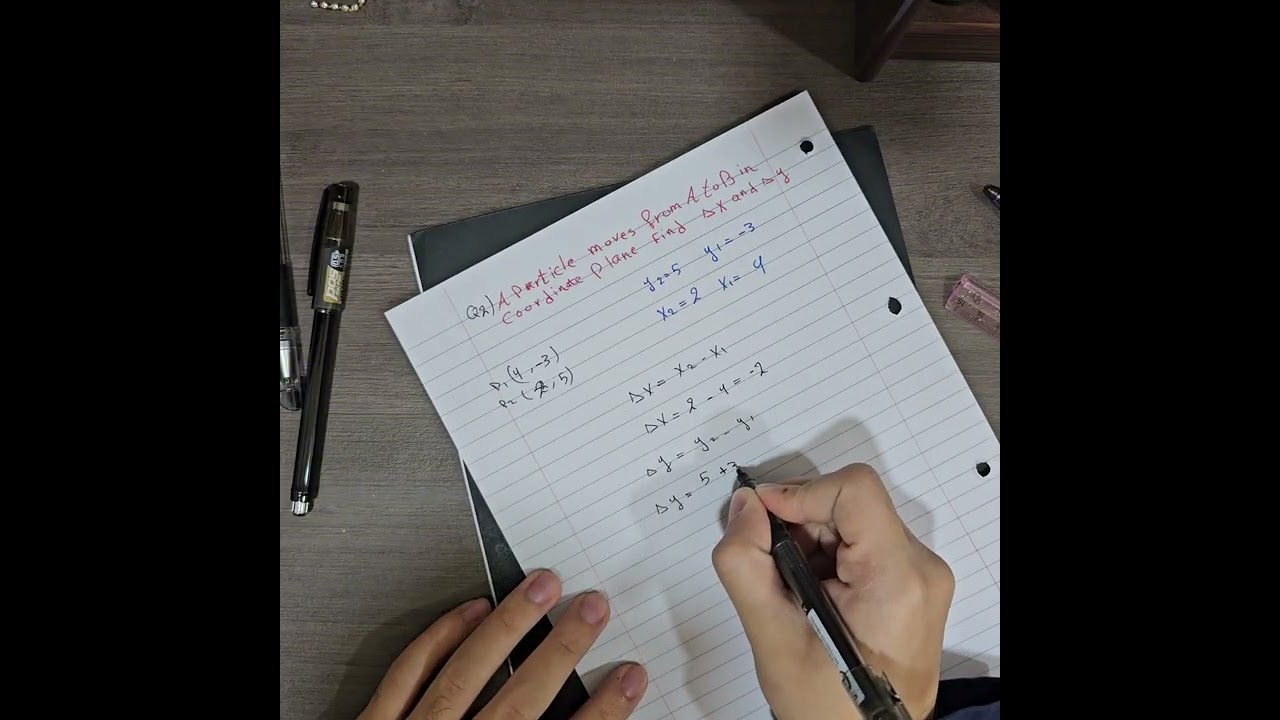 Q2) A Particle moves from A to B in
Coordinate Plane Find Δx and Δy
y2=5 y1=-3
x2=2 x1=4
P1(4,-3)
P2(2,5)
Δx= x2-x1
Δx= 2-4=-2
Δy= y2-y1
Δy= 5+3